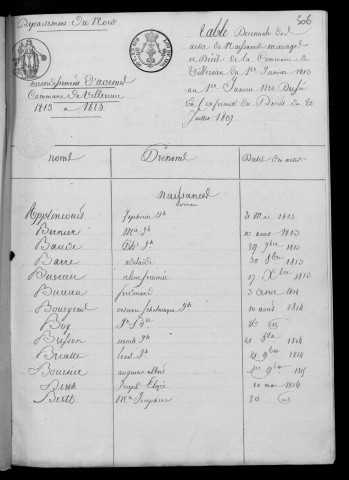 Département du Nord
506
arrondissement d'avesnes
Commune de Villereau
1813 a 1823
Table Décennale des
actes de Naissances mariages
et Décès de la Commune de
Villereau du 1er Janvier 1813
au 1er Janvier 1823 Dressée
en Conformité du Décret du 20
Juillet 1807
noms
Prénoms
Dates des actes
naissances
Applencourt Zephirin Jh 20 Mai 1813
Bernier Me Jh 10 aout 1813
Baude Jh 29 9bre 1813
Barre adelaide 30 8bre 1813
Buseau 17 Xbre 1813
Bureau ferdinand 3 avril 1814
Bourgeois Jh 10 août 1814
Boy Jn Bte
Brisson Jh 21 8bre
Briatte Louis Jh 21 9bre 1814
Bournier augustin albert 1er 9bre 1815
Berth Joseph Elysée 10 mai 1816
Berth Me Josephine 20